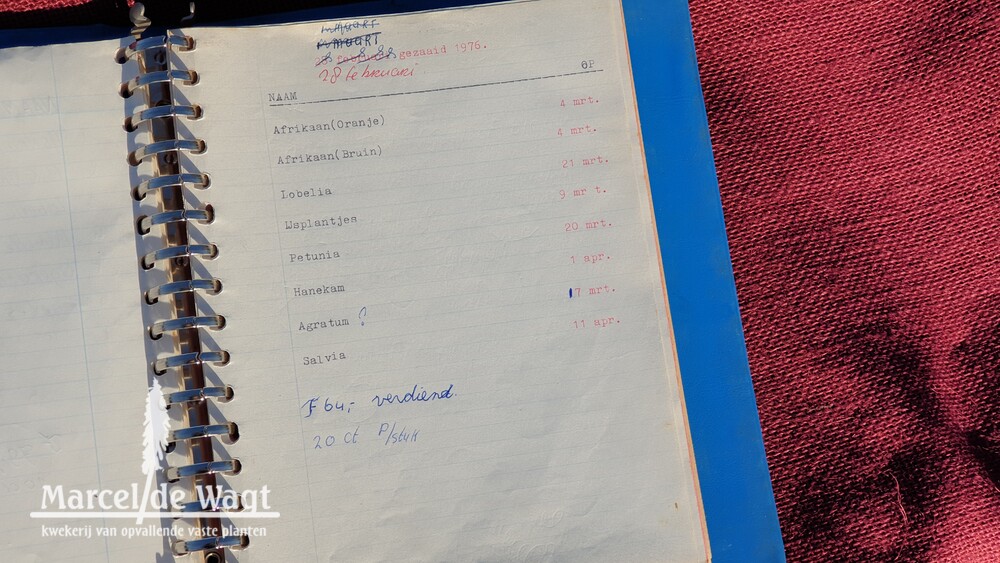 maart
MAART
28 februari gezaaid 1976.
28 februari
NAAM OP
Afrikaan(Oranje) 4 mrt.
Afrikaan(Bruin) 4 mrt.
Lobelia 21 mrt.
IJsplantjes 9 mr t.
Petunia 20 mrt.
Hanekam 1 apr.
Agratum ? 17 mrt.
Salvia 11 apr.
F 64,- verdiend.
20 ct P/stuk
Marcel de Wagt
kwekerij van opvallende vaste planten